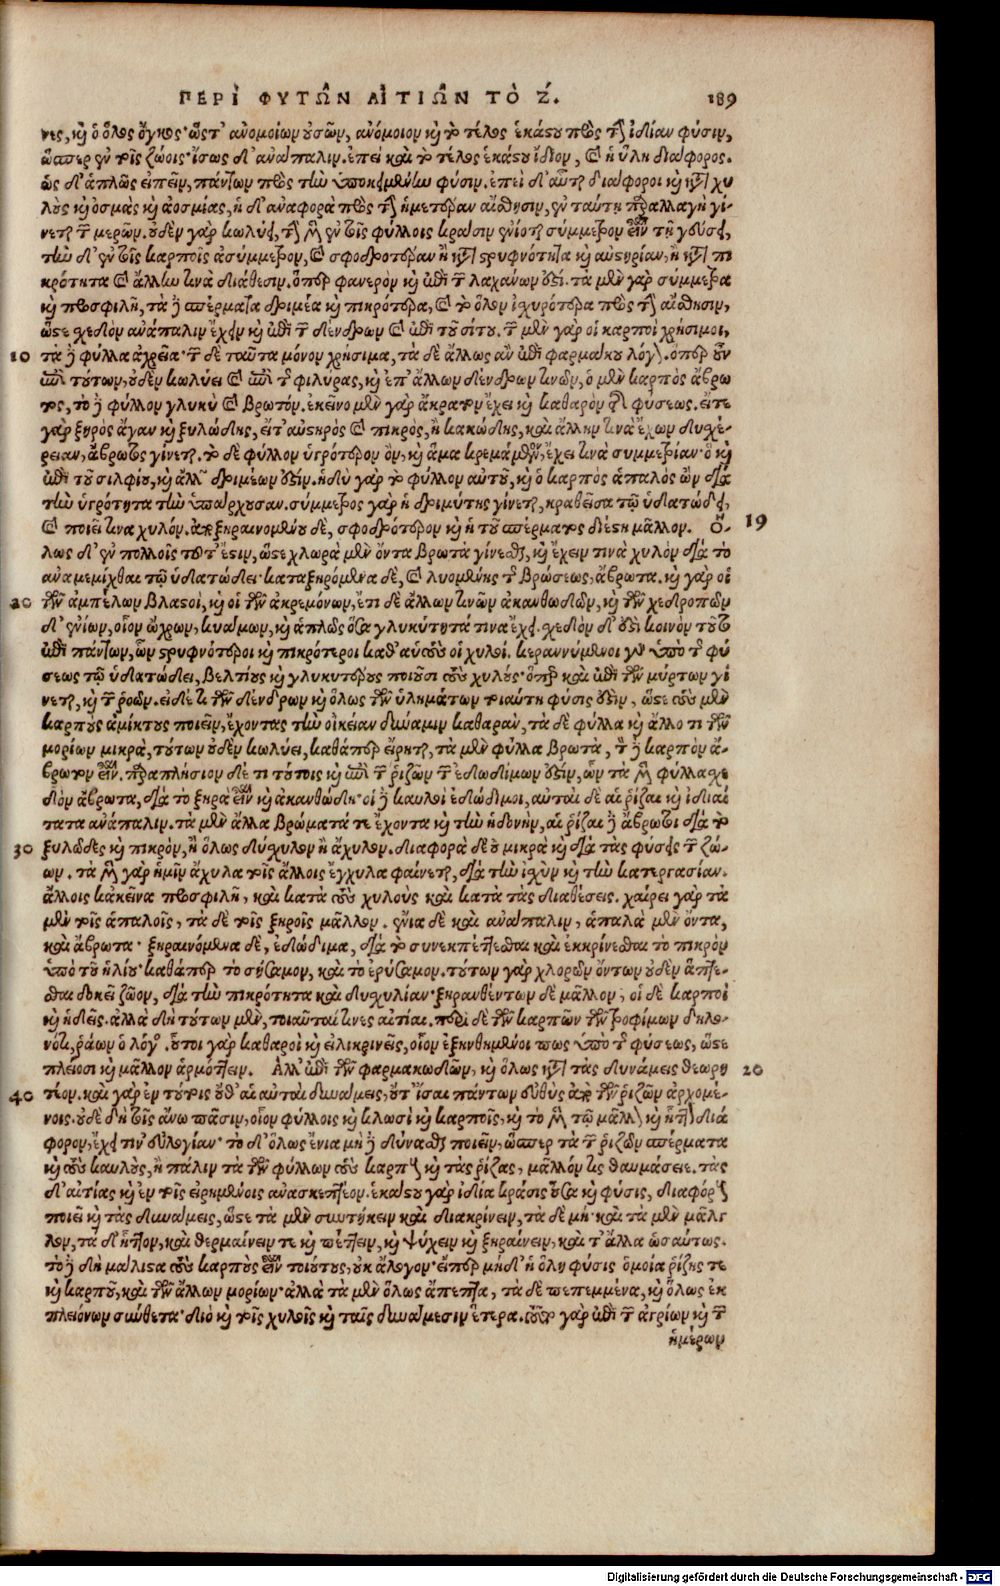 ΠΕΡῚ ΦΥΤΩ͂Ν ΑἸΤΙΩ͂Ν ΤῸ Ζ΄. 189
νες, καὶ ὁ ὅλος ὄγκος· ὥστ' ἀνομοίων οὐσῶν, ἀνόμοιον καὶ τὸ τέλος ἑκάστου πρὸς τὴν ἰδίαν φύσιν,
ὥσπερ ἐν τοῖς ζώοις· ἴσως δ' ἀνάπαλιν. ἐπεὶ καὶ τὸ τέλος ἑκάστου ἴδιον, καὶ ἡ ὕλη διάφορος.
ὡς δ' ἁπλῶς εἰπεῖν, πάντων πρὸς τὴν ὑποκειμένην φύσιν. ἐπεὶ δ' αὗται διάφοροι καὶ κατὰ χυ
λοὺς καὶ ὀσμὰς καὶ ἀοσμίας, ἡ δ' ἀναφορὰ πρὸς τὴν ἡμετέραν αἴσθησιν, ἐν ταύτῃ παραλλαγὴ γί-
νεται τῶν μερῶν. οὐδὲν γὰρ κωλύει, τὴν μὲν ἐν τοῖς φύλλοις κρᾶσιν ἐνίοτε σύμμετρον εἶναι τῇ γεύσει,
τὴν δ' ἐν τοῖς καρποῖς ἀσύμμετρον, καὶ σφοδροτέραν ἢ κατὰ στρυφνότητα καὶ αὐστηρίαν, ἢ κατὰ πι
κρότητα καὶ ἄλλην τινὰ διάθεσιν. ὅπερ φανερὸν καὶ ἐπὶ τῶν λαχάνων ἐστί. τὰ μὲν γὰρ σύμμετρα
καὶ προσφιλῆ, τὰ δὲ σπέρματα δριμέα καὶ πικρότερα, καὶ τὸ ὅλον ἰσχυρότερα πρὸς τὴν αἴσθησιν,
ὥστε σχεδὸν ἀνάπαλιν ἔχειν καὶ ἐπὶ τῶν δένδρων καὶ ἐπὶ τοῦ σίτου. τῶν μὲν γὰρ οἱ καρποὶ χρήσιμοι,
10 τὰ δὲ φύλλα ἀχρεῖα· τῶν δὲ ταῦτα μόνον χρήσιμα, τὰ δὲ ἄλλως ἂν ἐπὶ φαρμάκου λόγῳ. ὅπερ οὖν
ἐπὶ τούτων, οὐδὲν κωλύει καὶ ἐπὶ τῆς φιλύρας, καὶ ἐπ' ἄλλων δένδρων τινῶν, ὁ μὲν καρπὸς ἄβρω
τος, τὸ δὲ φύλλον γλυκὺ καὶ βρωτόν. ἐκεῖνο μὲν γὰρ ἄκρατον ἔχει καὶ καθαρὸν τῆς φύσεως. εἴτε
γὰρ ξηρὸς ἄγαν καὶ ξυλώδης, εἴτ' αὐστηρὸς καὶ πικρὸς, ἢ κακώδης, καὶ ἄλλην τινὰ ἔχων δυσχέ-
ρειαν, ἄβρωτος γίνεται. τὸ δὲ φύλλον ὑγρότερον ὂν, καὶ ἅμα κρεμάμενον, ἔχει τινὰ συμμετρίαν· ὃ καὶ
ἐπὶ τοῦ σιλφίου, καὶ ἄλλων δριμέων ἐστίν. ἡδὺ γὰρ τὸ φύλλον αὐτοῦ, καὶ ὁ καρπὸς ἁπαλὸς ὢν διὰ
τὴν ὑγρότητα τὴν ὑπάρχουσαν. σύμμετρος γὰρ ἡ δριμύτης γίνεται, κραθεῖσα τῷ ὑδατώδει,
καὶ ποιεῖ τινα χυλόν. ἀποξηραινομένου δὲ, σφοδρότερον καὶ ἡ τοῦ σπέρματος διέστη μᾶλλον. Ὅ- 19
λως δ' ἐν πολλοῖς τοῦτ' ἔστιν, ὥστε χλωρὰ μὲν ὄντα βρωτὰ γίνεσθαι, καὶ ἔχειν τινὰ χυλὸν διὰ τὸ
ἀναμεμίχθαι τῷ ὑδατώδει· καταξηρόμενα δὲ, καὶ λυομένης τῆς βρώσεως, ἄβρωτα. καὶ γὰρ οἱ
20 τῶν ἀμπέλων βλαστοὶ, καὶ οἱ τῶν ἀκρεμόνων, ἔτι δὲ ἄλλων τινῶν ἀκανθωδῶν, καὶ τῶν χεδροπῶν
δ' ἐνίων, οἷον ὤχρων, κυάμων, καὶ ἁπλῶς ὅσα γλυκύτητά τινα ἔχει. σχεδὸν δ' ἐστὶ κοινὸν τοῦτο
ἐπὶ πάντων, ὧν στρυφνότεροι καὶ πικρότεροι καθ' αὑτοὺς οἱ χυλοί. κεραννύμενοι γὰρ ὑπὸ τῆς φύ
σεως τῷ ὑδατώδει, βελτίους καὶ γλυκυτέρους ποιοῦσι τοὺς χυλούς· ὅπερ καὶ ἐπὶ τῶν μύρτων γί
νεται, καὶ τῶν ῥοῶν. εἰ δέ τι τῶν δένδρων καὶ ὅλως τῶν ὑλημάτων τοιαύτη φύσις ἐστὶν, ὥστε τοὺς μὲν
καρποὺς ἀμίκτους ποιεῖν, ἔχοντας τὴν οἰκείαν δύναμιν καθαρὰν, τὰ δὲ φύλλα καὶ ἄλλο τι τῶν
μορίων μικρὰ, τούτων οὐδὲν κωλύει, καθάπερ εἴρηται, τὰ μὲν φύλλα βρωτὰ, τὸν δὲ καρπὸν ἄ-
βρωτον εἶναι. παραπλήσιον δέ τι τούτοις καὶ ἐπὶ τῶν ῥιζῶν τῶν ἐδωδίμων ἐστὶν, ὧν τὰ μὲν φύλλα σχε
δὸν ἄβρωτα, διὰ τὸ ξηρὰ εἶναι καὶ ἀκανθώδη· οἱ δὲ καυλοὶ ἐδώδιμοι, αὐταὶ δὲ αἱ ῥίζαι καὶ ἰδιαί
τατα ἀνάπαλιν. τὰ μὲν ἄλλα βρώματά τε ἔχοντα καὶ τὴν ἡδονὴν, αἱ ῥίζαι δὲ ἄβρωτοι διὰ τὸ
30 ξυλῶδες καὶ πικρὸν, ἢ ὅλως δύσχυλον ἢ ἄχυλον. διαφορὰ δὲ οὐ μικρὰ καὶ διὰ τὰς φύσεις τῶν ζώ-
ων. τὰ μὲν γὰρ ἡμῖν ἄχυλα τοῖς ἄλλοις ἔγχυλα φαίνεται, διὰ τὴν ἰσχὺν καὶ τὴν κατεργασίαν.
ἄλλοις κἀκεῖνα προσφιλῆ, καὶ κατὰ τοὺς χυλοὺς καὶ κατὰ τὰς διαθέσεις. χαίρει γὰρ τὰ
μὲν τοῖς ἁπαλοῖς, τὰ δὲ τοῖς ξηροῖς μᾶλλον. ἔνια δὲ καὶ ἀνάπαλιν, ἁπαλὰ μὲν ὄντα,
καὶ ἄβρωτα· ξηραινόμενα δὲ, ἐδώδιμα, διὰ τὸ συνεκπέττεσθαι καὶ ἐκκρίνεσθαι τὸ πικρὸν
ὑπὸ τοῦ ἡλίου· καθάπερ τὸ σήσαμον, καὶ τὸ ἐρύσιμον. τούτων γὰρ χλωρῶν ὄντων οὐδὲν ἅπτε-
σθαι δοκεῖ ζῶον, διὰ τὴν πικρότητα καὶ δυσχυλίαν· ξηρανθέντων δὲ μᾶλλον, οἱ δὲ καρποὶ
καὶ ἡδεῖς. ἀλλὰ δὴ τούτων μὲν, τοιαῦταί τινες αἰτίαι. περὶ δὲ τῶν καρπῶν τῶν τροφίμων δηλο-
νότι, ῥᾴων ὁ λόγος. οὗτοι γὰρ καθαροὶ καὶ εἰλικρινεῖς, οἷον ἐξηνθημένοι πως ὑπὸ τῆς φύσεως, ὥστε
πλείοσι καὶ μᾶλλον ἁρμόττειν. Ἀλλ' ἐπὶ τῶν φαρμακωδῶν, καὶ ὅλως κατὰ τὰς δυνάμεις θεωρη 20
40 τέον. καὶ γὰρ ἐν τούτοις οὔθ' αἱ αὐταὶ δυνάμεις, οὔτ' ἴσαι πάντων εὐθὺς ἀπὸ τῶν ῥιζῶν ἀρχομέ-
νοις. οὐδὲ δὴ τοῖς ἄνω πᾶσιν, οἷον φύλλοις καὶ κλωσὶ καὶ καρποῖς, καὶ τὸ μὲν τῷ μᾶλλον καὶ ἧττον διά
φορον, ἔχει τιν' εὐλογίαν· τὸ δ' ὅλως ἔνια μὴ δὲ δύνασθαι ποιεῖν, ὥσπερ τὰ τῶν ῥιζῶν σπέρματα
καὶ τοὺς καυλοὺς, ἢ πάλιν τὰ τῶν φύλλων τοὺς καρποὺς καὶ τὰς ῥίζας, μᾶλλόν τις θαυμάσειε. τὰς
δ' αἰτίας καὶ ἐν τοῖς εἰρημένοις ἀνασκεπτέον. ἑκάστου γὰρ ἰδία κρᾶσις οὖσα καὶ φύσις, διαφόρους
ποιεῖ καὶ τὰς δυνάμεις, ὥστε τὰ μὲν συντήκειν καὶ διακρίνειν, τὰ δὲ μή· καὶ τὰ μὲν μᾶλ
λον, τὰ δ' ἧττον, καὶ θερμαίνειν τε καὶ πέττειν, καὶ ψύχειν καὶ ξηραίνειν, καὶ τ' ἄλλα ὡσαύτως.
τὸ δὲ δὴ μάλιστα τοὺς καρποὺς εἶναι τοιούτους, οὐκ ἄλογον· εἴπερ μηδ' ἡ ὅλη φύσις ὁμοία ῥίζης τε
καὶ καρποῦ, καὶ τῶν ἄλλων μορίων· ἀλλὰ τὰ μὲν ὅλως ἄπεπτα, τὰ δὲ πεπεμμένα, καὶ ὅλως ἐκ
πλειόνων σύνθετα· διὸ καὶ τοῖς χυλοῖς καὶ ταῖς δυνάμεσιν ἕτερα. γὰρ ἐπὶ τῶν ἀγρίων καὶ τῶν
ἡμέρων
Digitalisierung gefördert durch die Deutsche Forschungsgemeinschaft - DFG